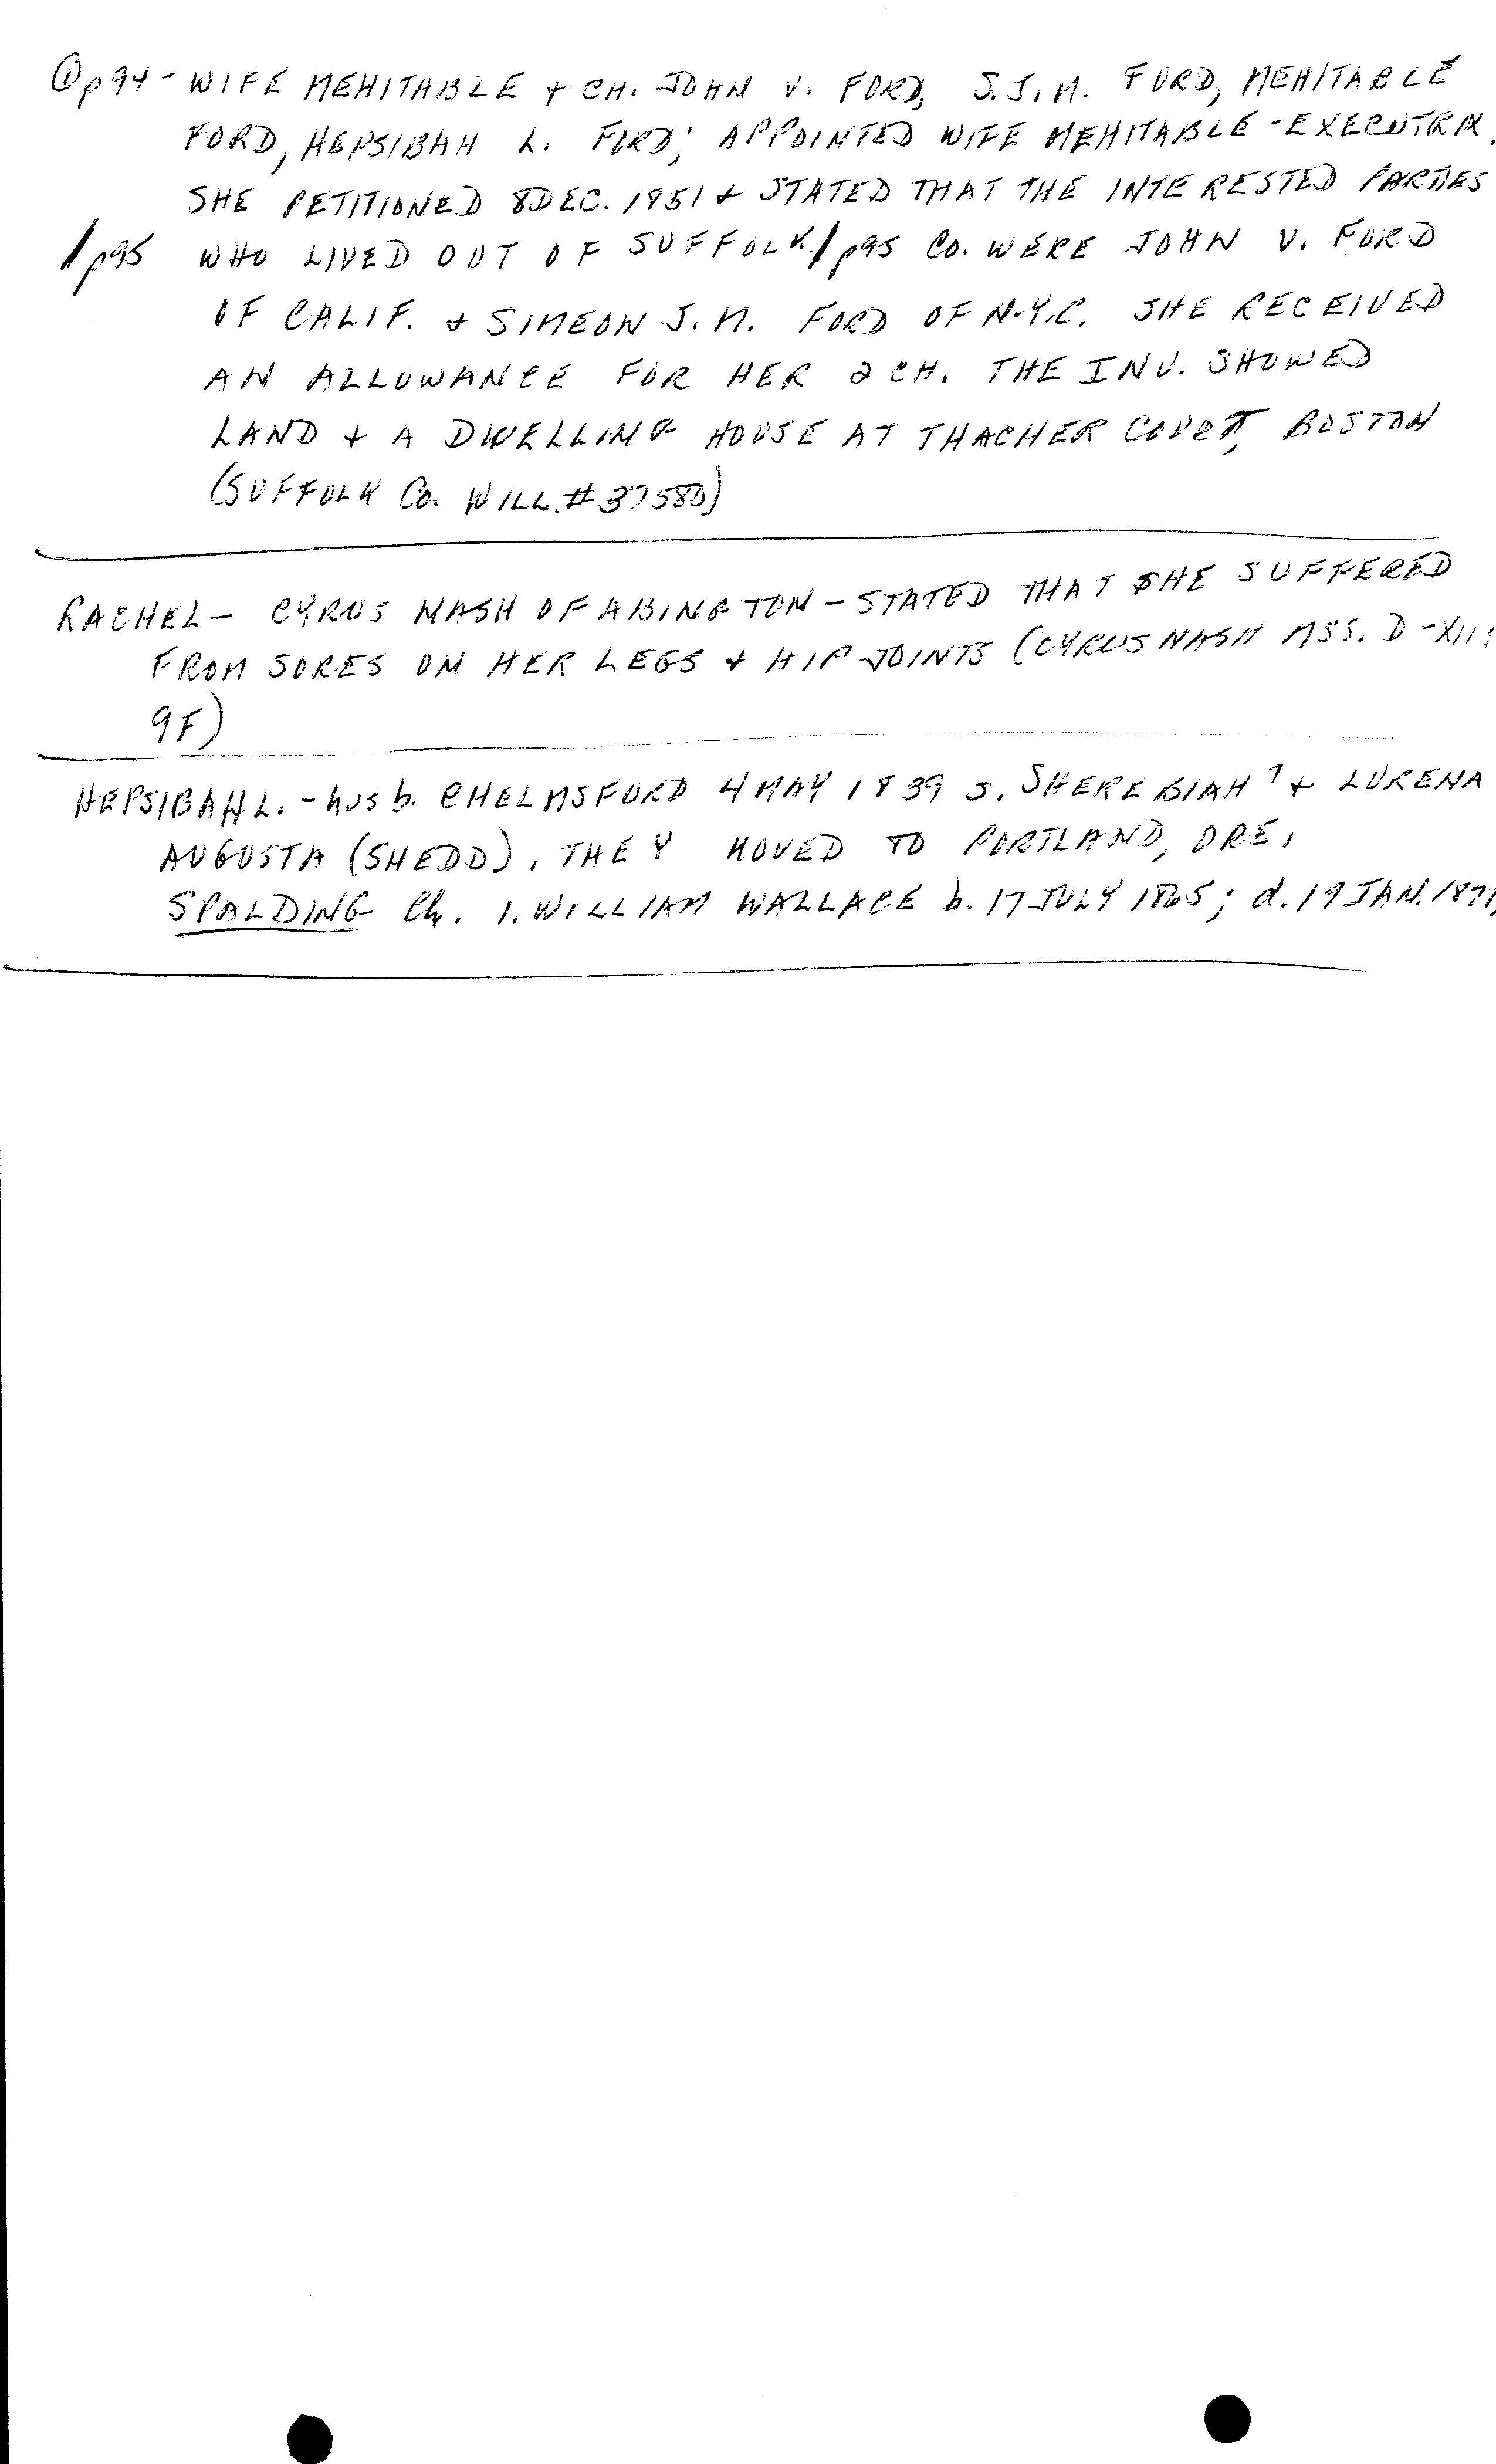 ① p94 - WIFE MEHITABLE + CH. JOHN V. FORD, S.J.M. FORD, MEHITABLE
FORD, HEPSIBAH L. FORD; APPOINTED WIFE MEHITABLE - EXECUTRIX.
SHE PETITIONED 8 DEC. 1851 + STATED THAT THE INTERESTED PARTIES
/p95 WHO LIVED OUT OF SUFFOLK /p95 CO. WERE JOHN V. FORD
OF CALIF. + SIMEON J.M. FORD OF N.Y.C. SHE RECEIVED
AN ALLOWANCE FOR HER 2 CH. THE INV. SHOWED
LAND + A DWELLING HOUSE AT THACHER COURT, BOSTON
(SUFFOLK CO. WILL #37580)
RACHEL - CYRUS NASH OF ABINGTON - STATED THAT SHE SUFFERED
FROM SORES ON HER LEGS + HIP JOINTS (CYRUS NASH MSS. D-XII:
9F)
HEPSIBAH L. - hus b. CHELMSFORD 4 MAY 1839 s. SHEREBIAH 7 + LURENA
AUGUSTA (SHEDD). THEY MOVED TO PORTLAND, ORE.
SPALDING Ch. 1. WILLIAM WALLACE b. 17 JULY 1865; d. 19 JAN.